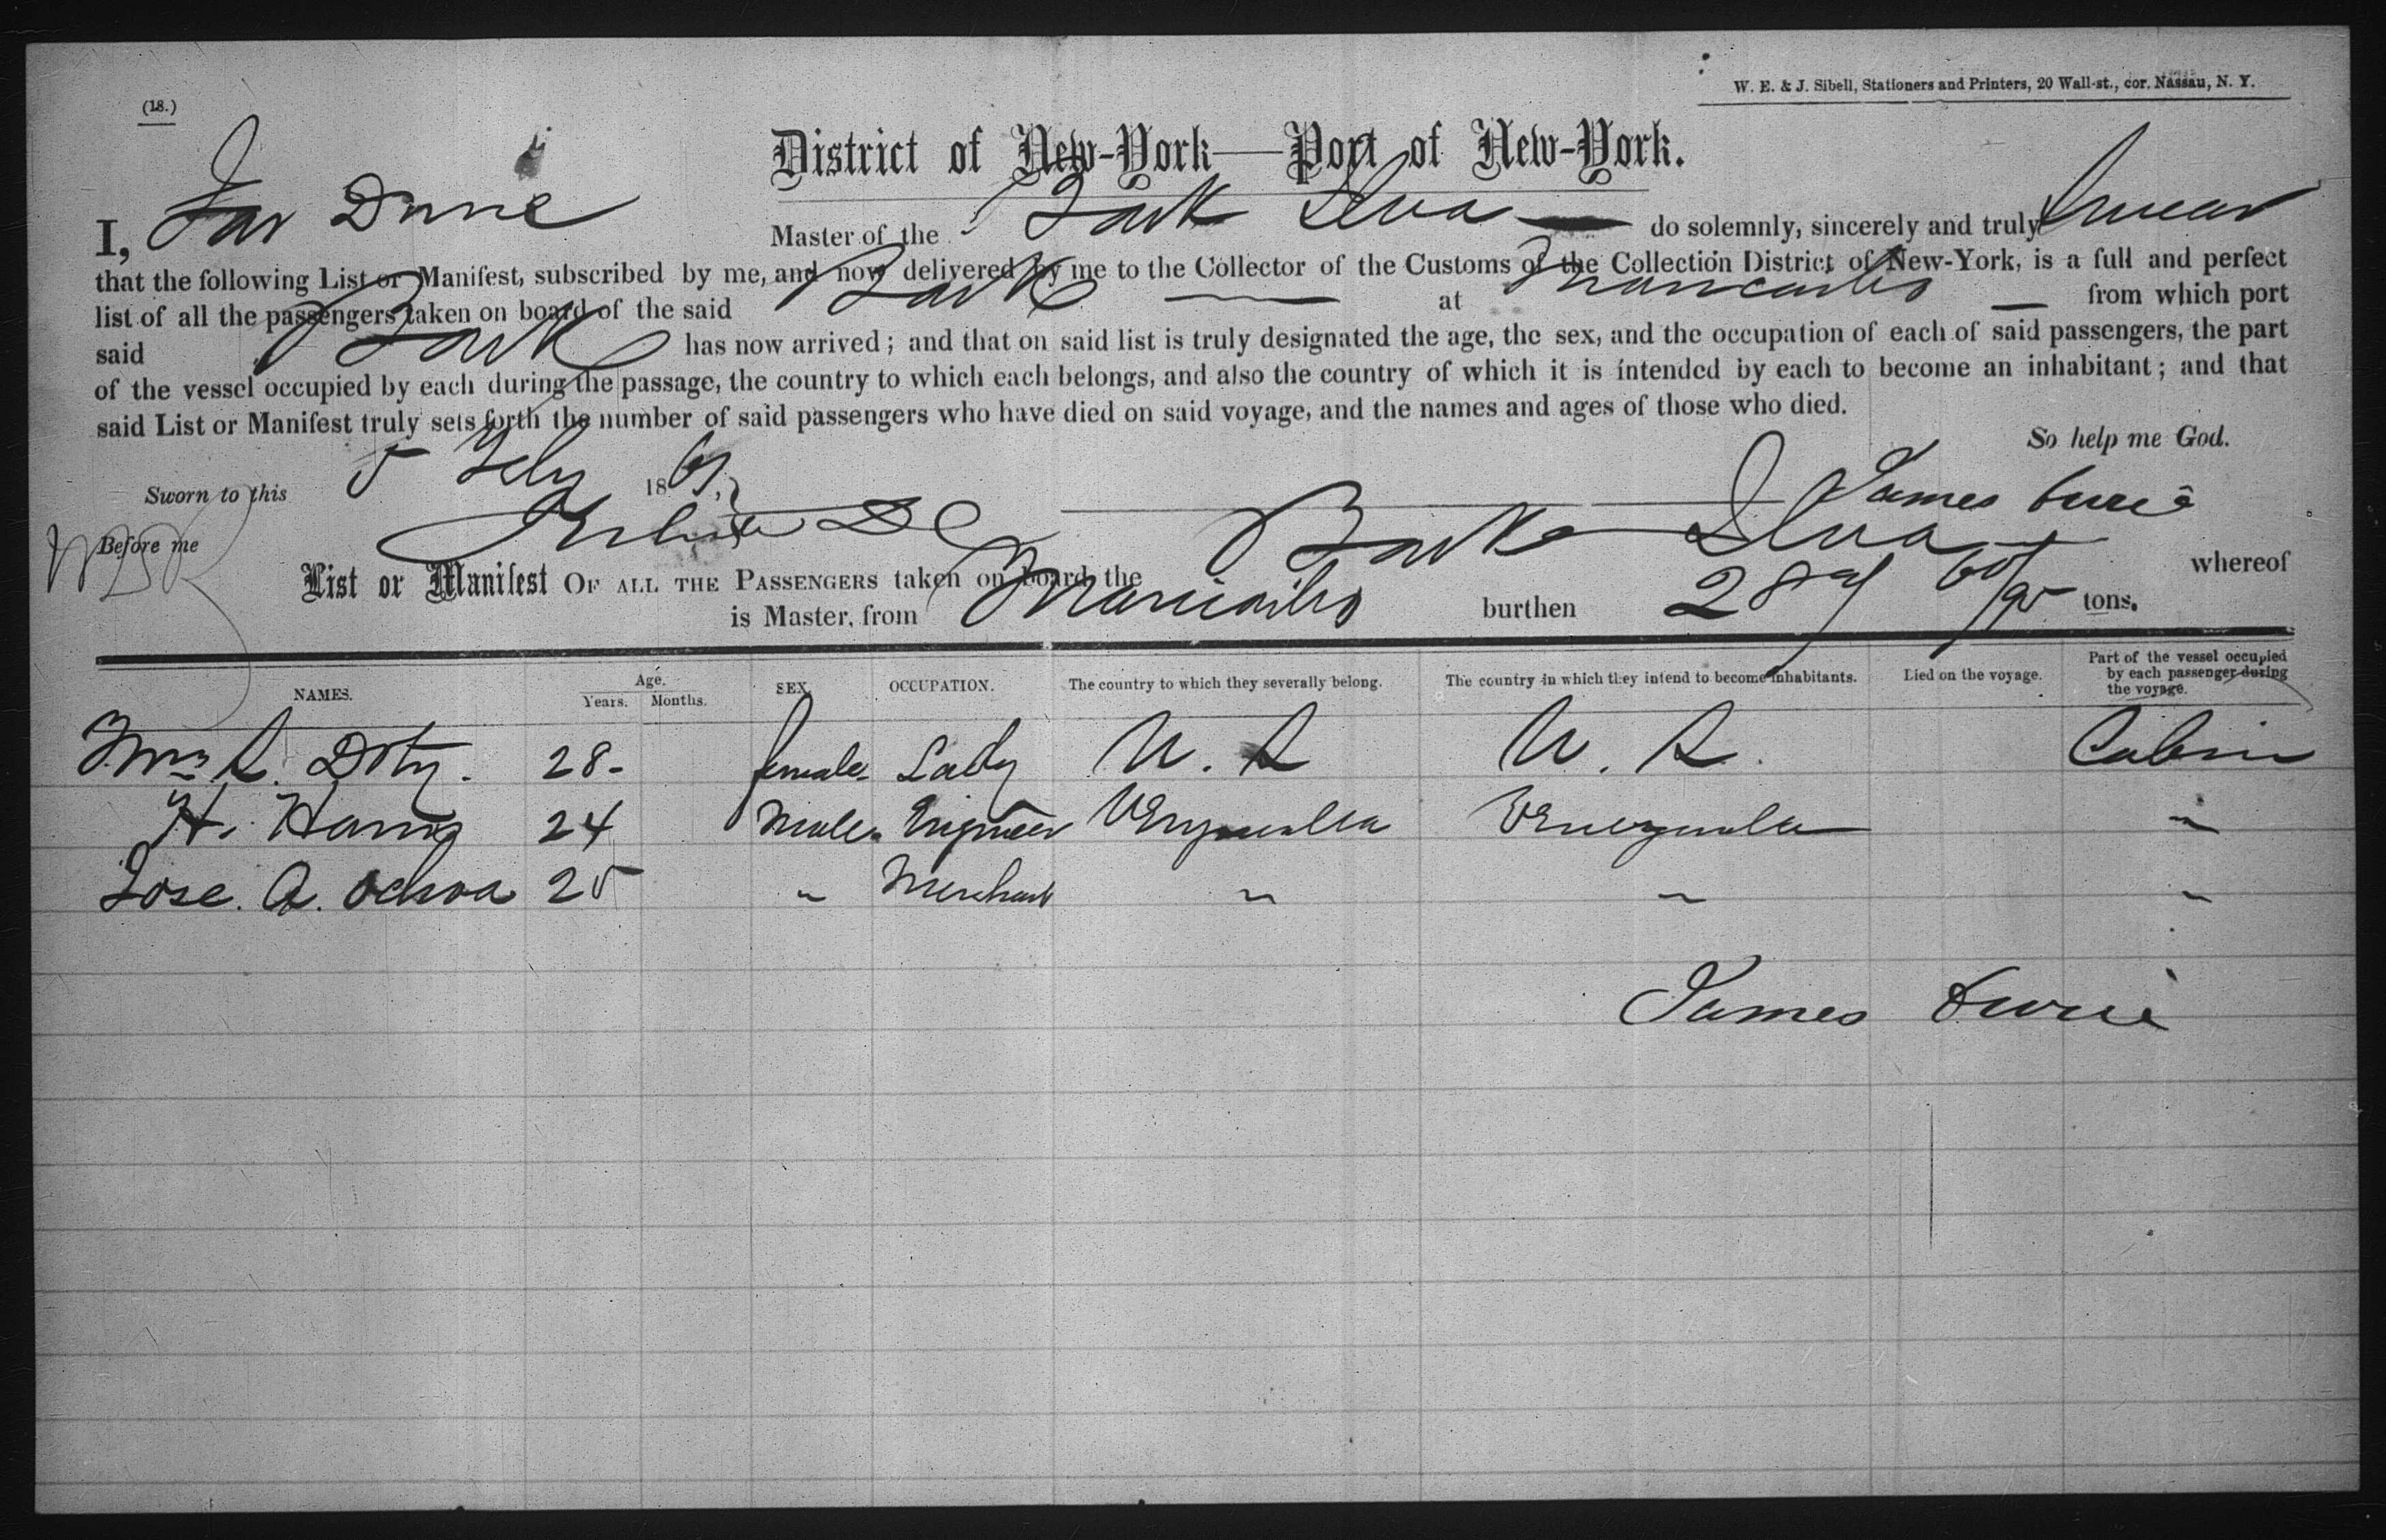 (18.)
W. E. & J. Sibell, Stationers and Printers, 20 Wall-st., cor. Nassau, N. Y.
District of New-York—Port of New-York.
I, Jas Master of the Bark do solemnly, sincerely and truly swear
that the following List or Manifest, subscribed by me, and now delivered by me to the Collector of the Customs of the Collection District of New-York, is a full and perfect
list of all the passengers taken on board of the said Bark at Maracaibo from which port
said Bark has now arrived; and that on said list is truly designated the age, the sex, and the occupation of each of said passengers, the part
of the vessel occupied by each during the passage, the country to which each belongs, and also the country of which it is intended by each to become an inhabitant; and that
said List or Manifest truly sets forth the number of said passengers who have died on said voyage, and the names and ages of those who died.
So help me God.
Sworn to this 5 Feby 186
James
Before me
List or Manifest OF ALL THE PASSENGERS taken on board the Bark whereof
is Master, from Maracaibo burthen tons.
NAMES. Age. Years. Months. SEX. OCCUPATION. The country to which they severally belong. The country in which they intend to become inhabitants. Died on the voyage. Part of the vessel occupied by each passenger during the voyage.
Mrs S. Doty. 28 female Lady U. S U. S. Cabin
H. Harris 24 Male Engineer Venezuela Venezuela "
Jose. A. Ochoa 25 " Merchant " " "
James